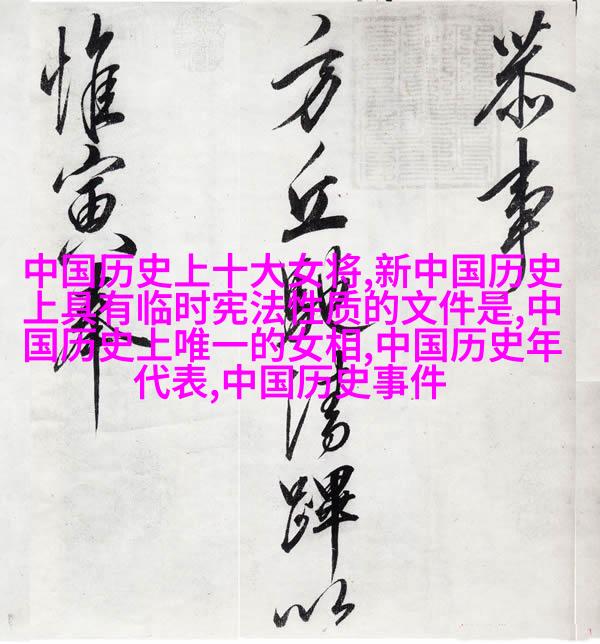 恭事
方丘清蹕以
惟寅奉
中国历史上十大女将,新中国历史
上具有临时宪法性质的文件是,中
国历史上唯一的女相,中国历史年
代表,中国历史事件